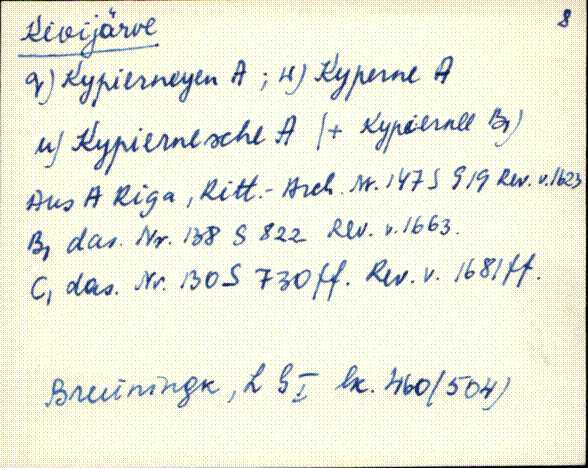 8
Kivijärve
g) Kypierneyen A ; H) Kyperne A
u) Kypiernesche A (+ Kypiernell B₁)
Aus A Riga, Ritt.- Arch. Nr. 147 S 919 Rev. v. 1623
B₁ das. Nr. 138 S 822 Rev. v. 1663.
C₁ das. Nr. 130 S 730 ff. Rev. v. 1681 ff.
Breiningk, L G I lk. 460 (504)